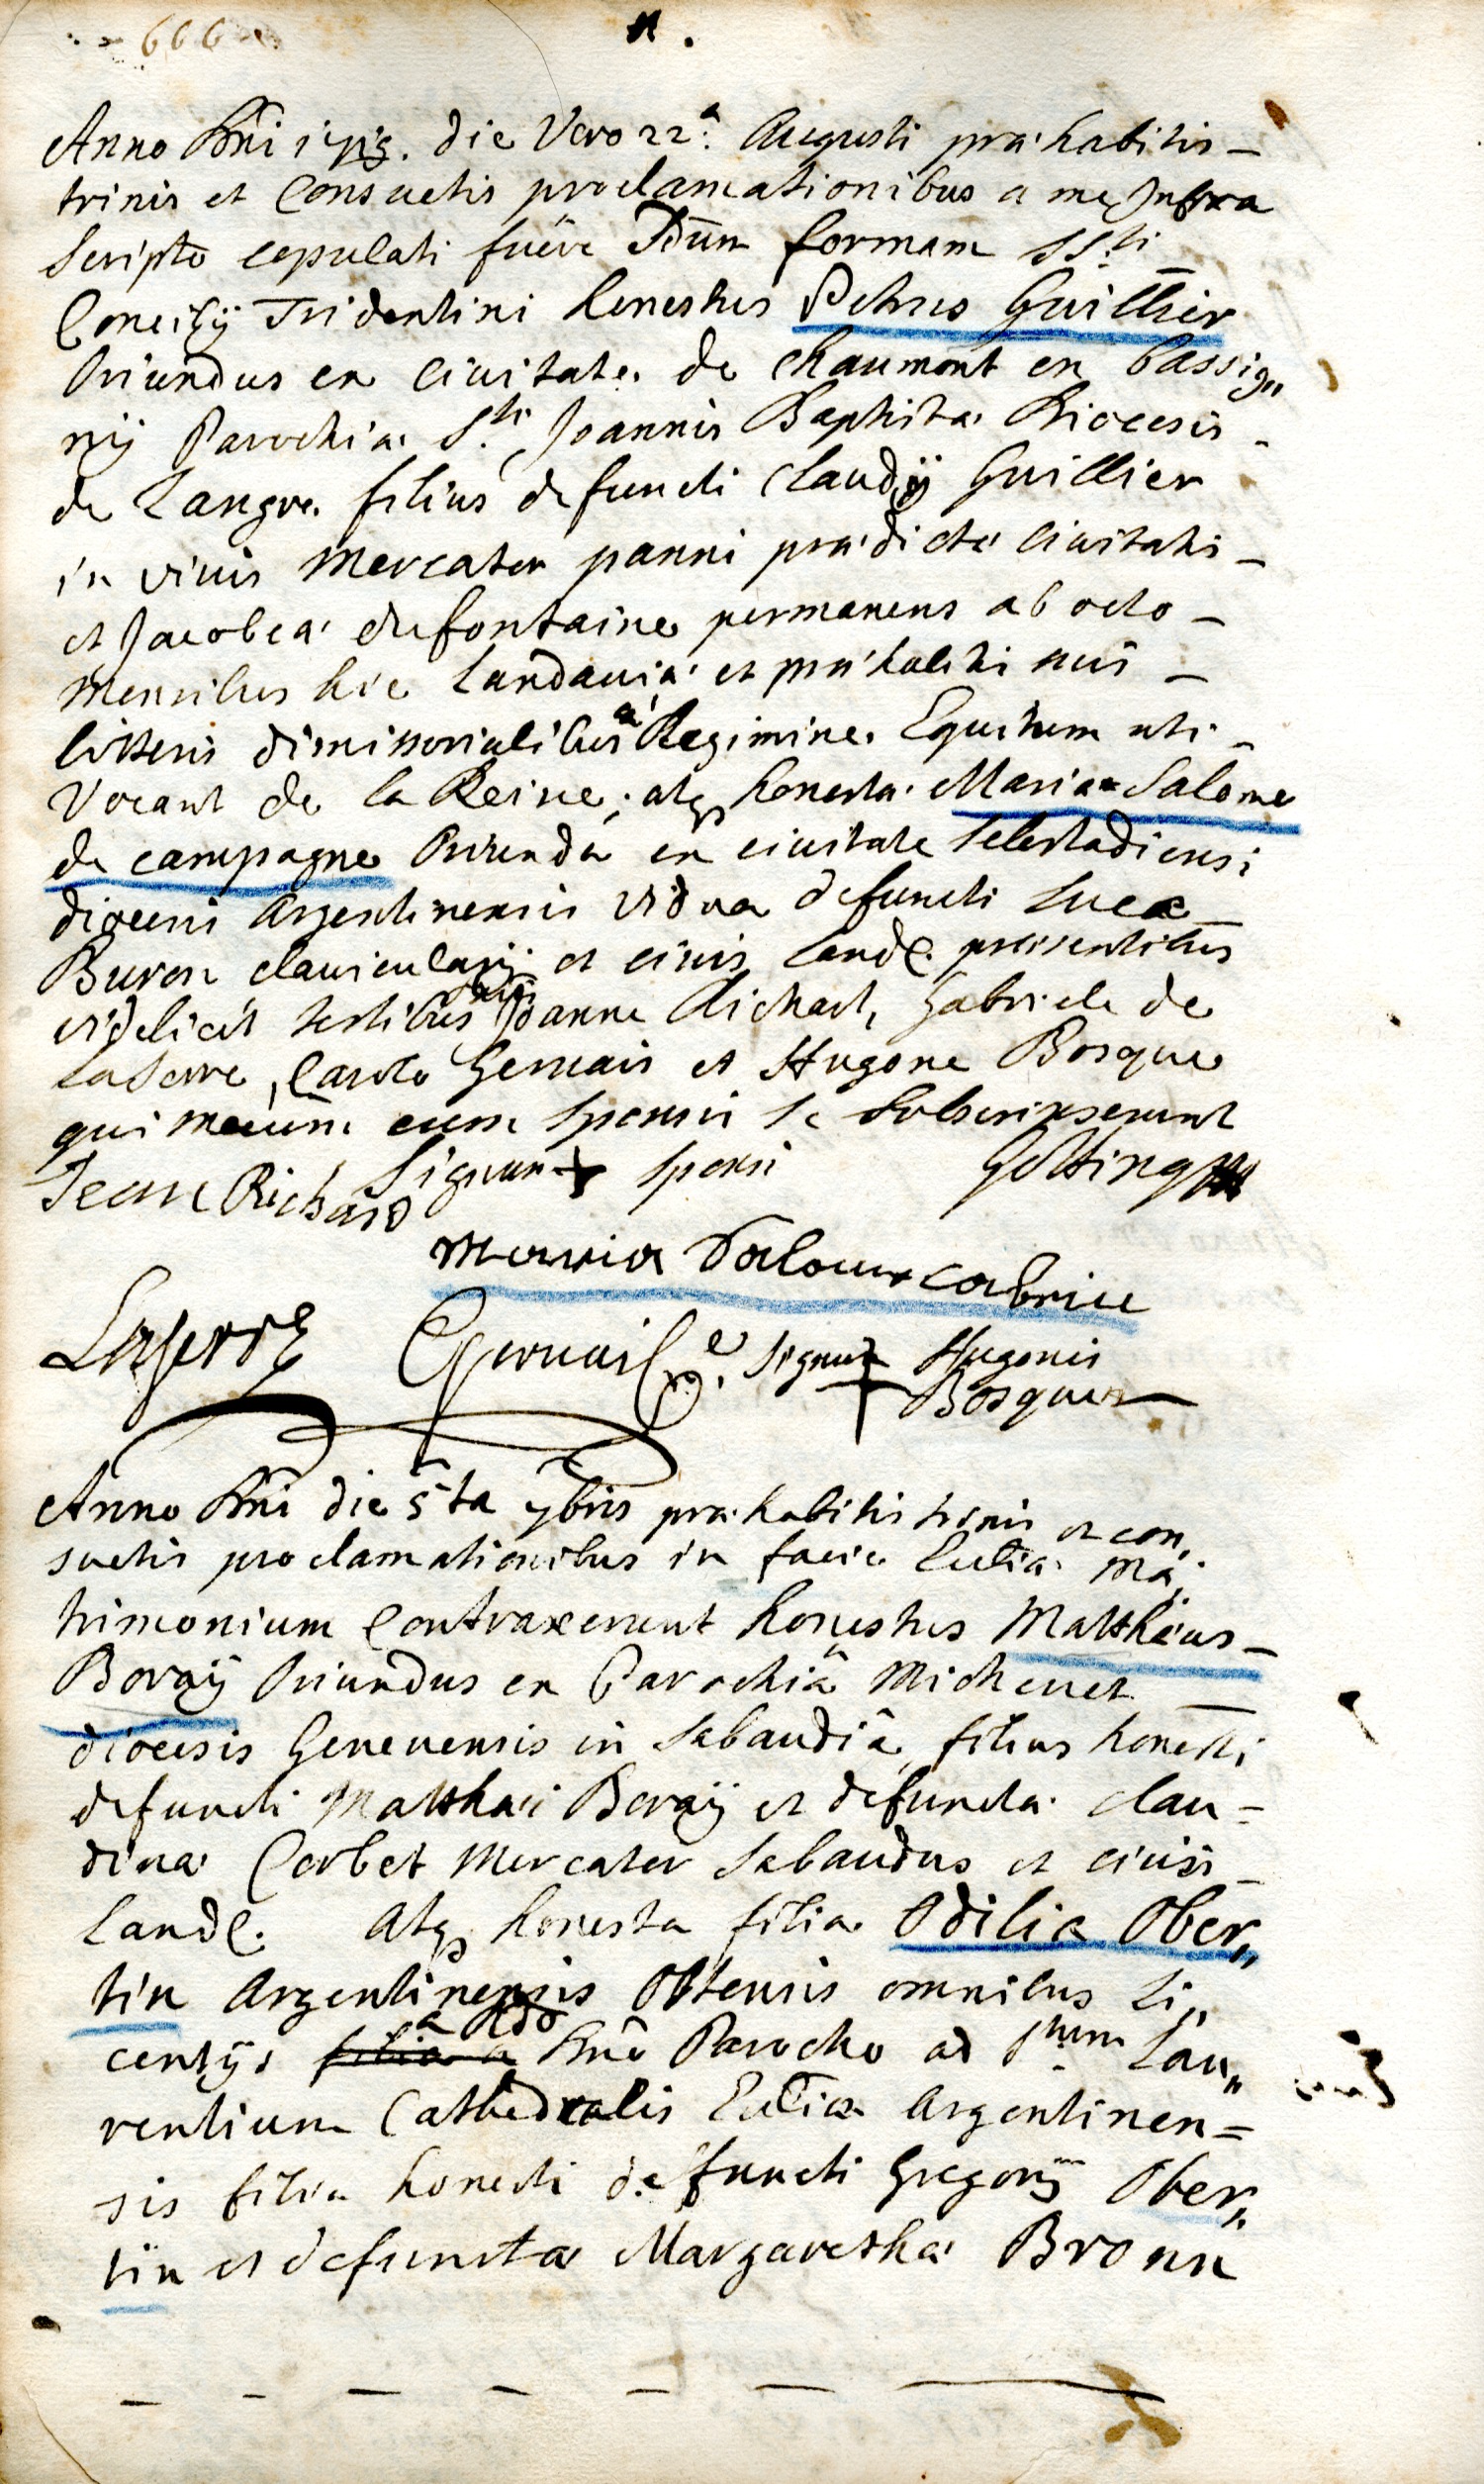 666
n.
Anno Dñi die Vero 22.ª Augusti præhabitis –
trinis et Consuetis proclamationibus a me Infra
scripto copulati fuêre S̄dūm formam SS.ti
Concilÿ Tridentini honestus Petrus Guillier
Oriundus ex Ciuitate de Chaumont en Bassig„
nÿ Parochiæ S.ti Joannis Baptistæ Diocesis –
de Langre filius defuncti Claudÿ Guillier
in viuis Mercator panni prædictæ Ciuitatis –
et Jacobeæ defontaine permanens ab octo –
Mensibus hic Landauiæ et præhabitis suis –
litteris dimissorialibus à Regimine Equitum uti –
Vocant de la Reine; atqs honesta Maria Salome
de campagne Oriunda ex ciuitate Selestadiensi
diocesis Argentinensis Vidua defuncti Lucæ
Buron clauicularÿ et ciuis Landl. præsentibus
videlicet testibus Joanne Richart, Gabriele de
LaSerre, Carolo Geruais et Hugone Bosque
qui mecum cum sponsis se Subscripserunt
Jean Richard Signum + sponsi Götting
Marria Salome
Laserre Geruais Signum + Hugonis
Bosque
Anno Dñi die 5ta 7bris præhabitis trinis et con,
suetis proclamationibus in facie Ecclīæ Ma,
trimonium Contraxerunt honestus Matthæus –
Boraÿ Oriundus ex Parochiâ Micheuet
diocesis Geneuensis in Sabaudiâ, filius honesti
defuncti Matthæi Boraÿ et defunctæ Clau=
dinæ Corbet Mercator Sabaudus et ciuis –
Landl. Atqs honesta filia Odilia Ober„
tin Argentinensis Obtensis omnibus Li,,
centÿs filia a à Rdo Dnô Parocho ad S.tum Lau„
rentium Cathedralis Ecclīæ Argentinen=
sis filia honesti defuncti Gregorÿ Ober„
tin et defunctæ Margarethæ Bronn